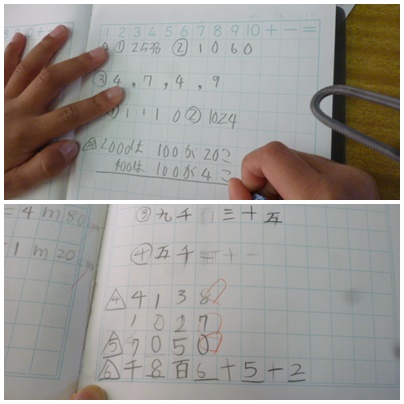 1 2 3 4 5 6 7 8 9 10 + - =
① 25% ② 1060
③ 4, 7, 4, 9
1 1 1 0 ② 1024
2000は 100が20こ
400は 100が4こ
= 4 m 80 cm
1 m 20 cm
③ 九千 三十五
④ 五千二十一
4 4138
1027
5 7050
6 千8百6十5-2